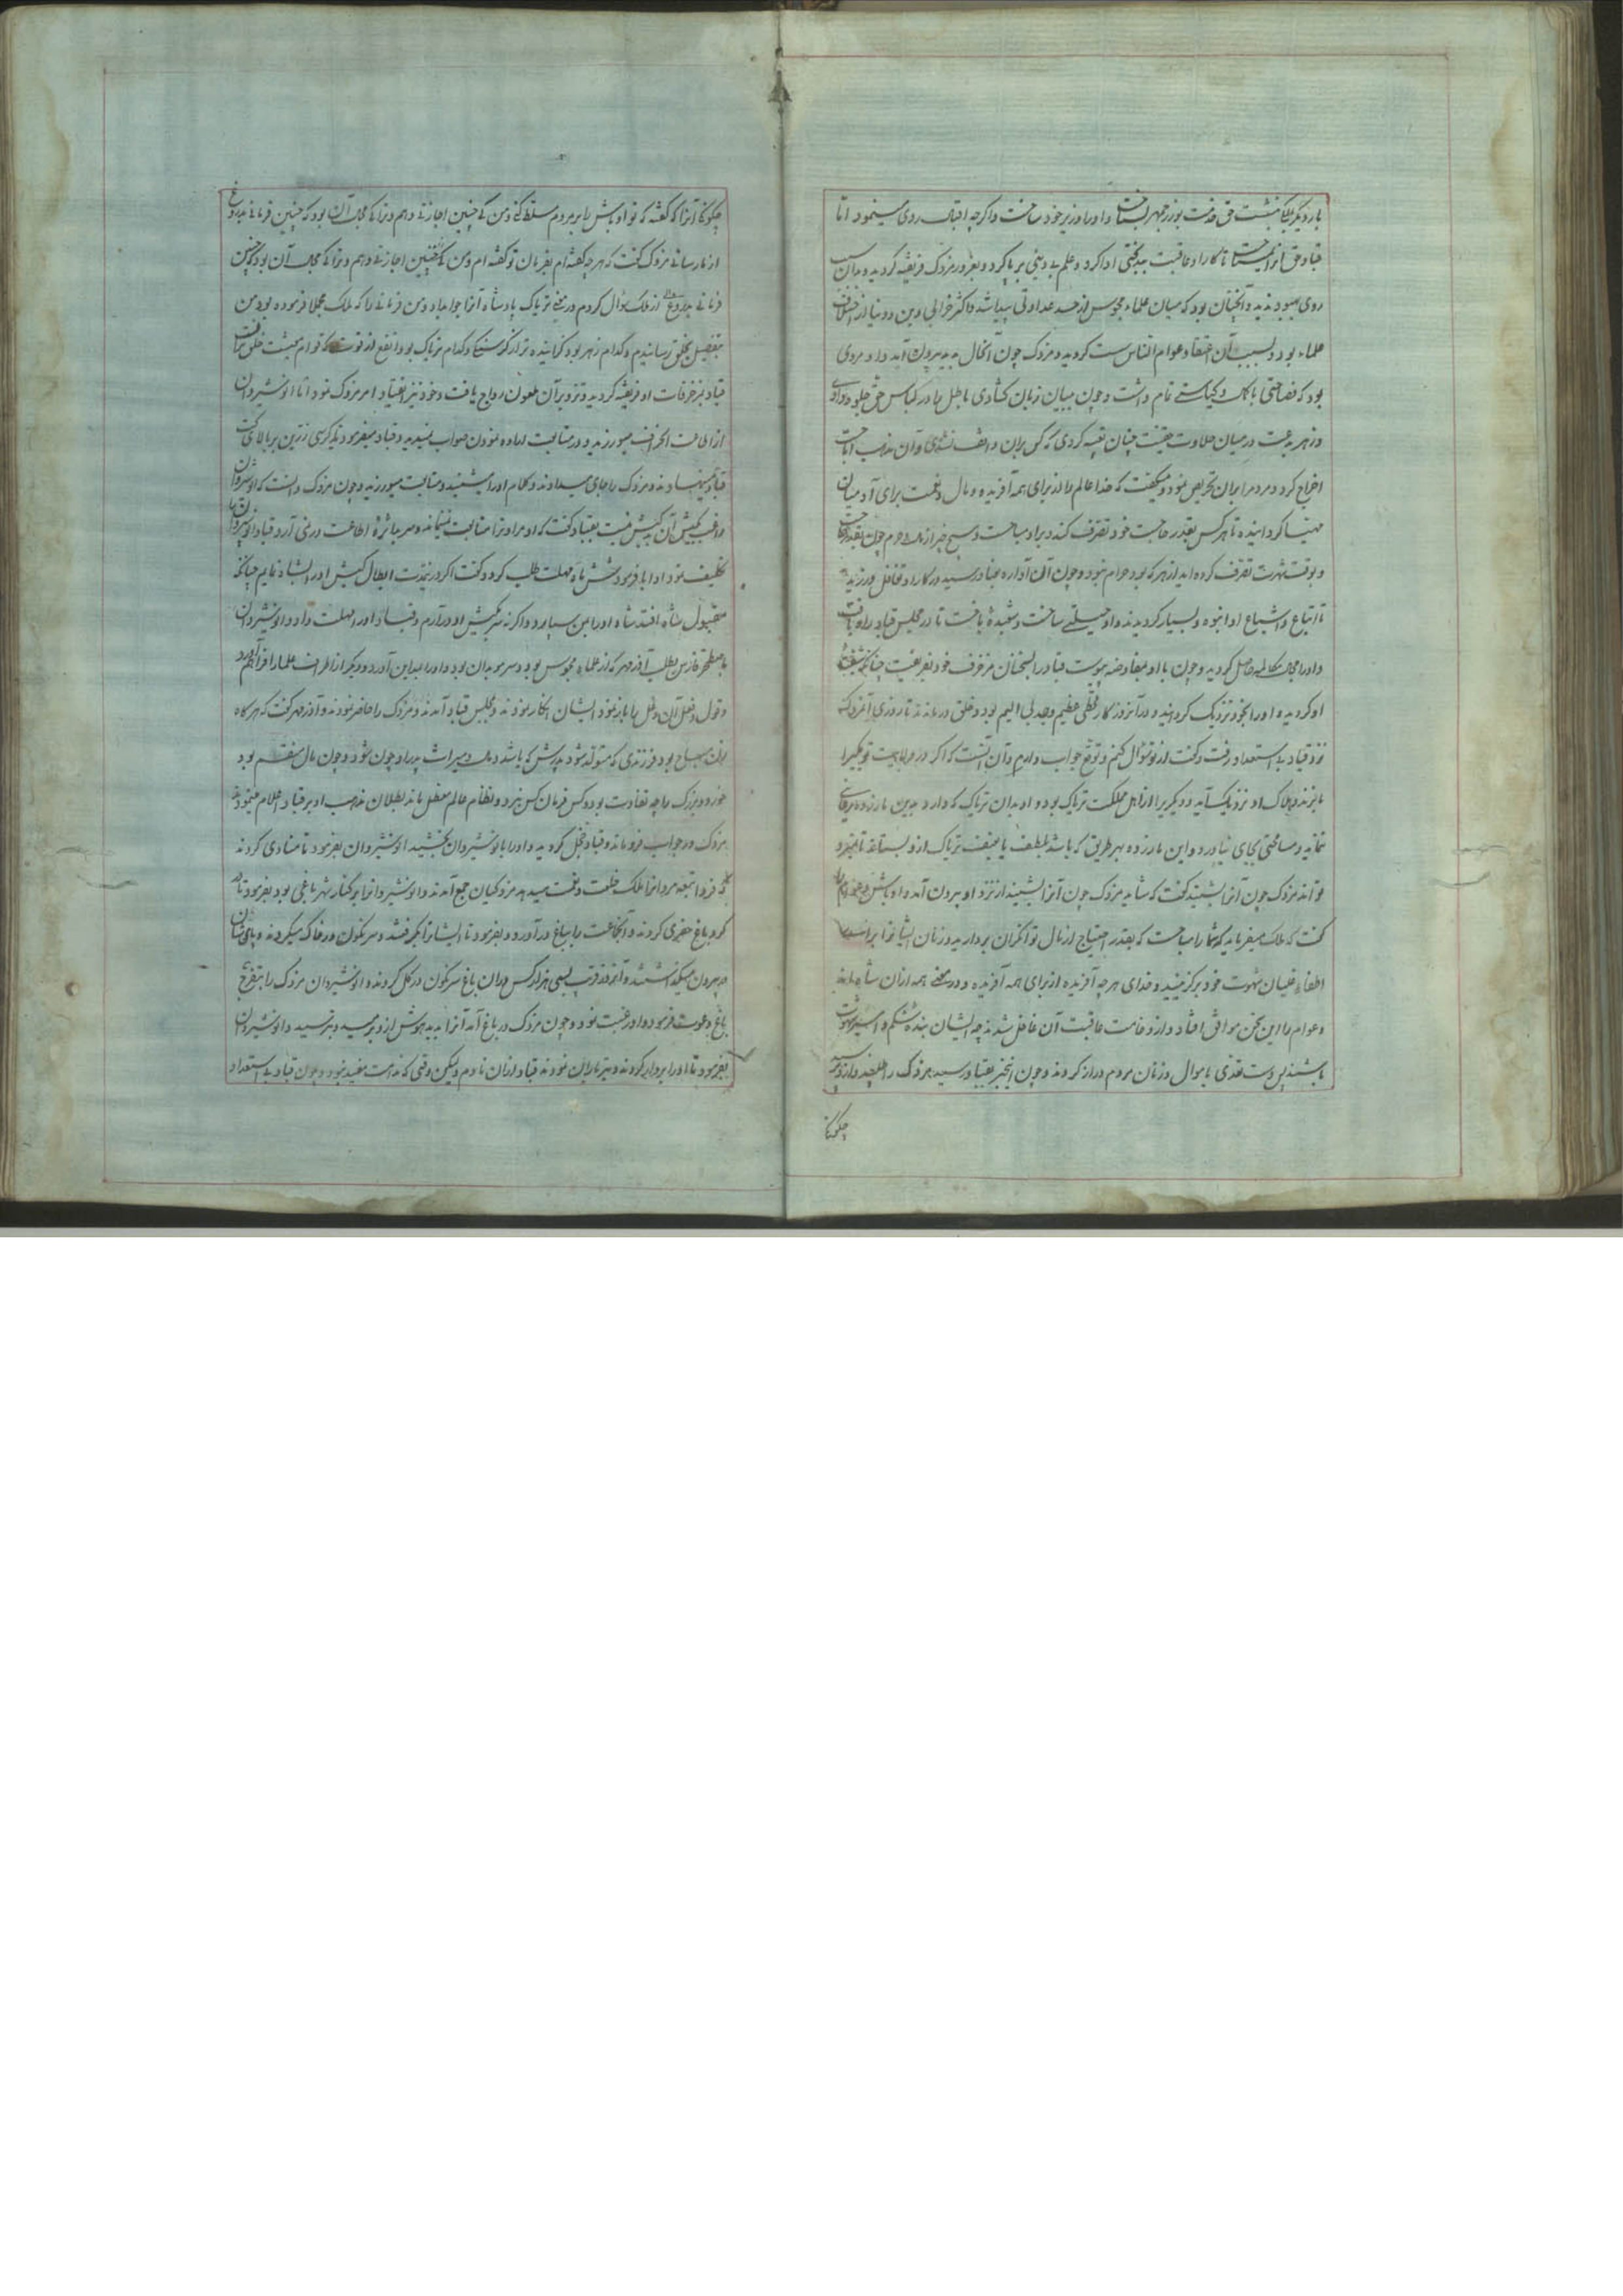 بار دیگر بملک بنشست حق خدمت بوزرجمهر بشناخت و اورا وزیر خود ساخت و اکرچه اقبالش روی مینمود اما
قباد حق نشناخت تا کار او عاقبت ببدبختی ادا کرد و علم بی دینی بر پا کرد و بغرور مزدک فریفته کردید و بدان سبب
روی بهبود ندید و آنچنان بود که میان علماء مجوس از حسد عداوتی پیدا شد و اکثر خرابی دین و دنیا از اختلاف
علماء بود و بسبب آن اعتقاد عوام الناس سست کردید و مزدک چون آنحال بدید بیرون آمد و او مردی
بود که فصاحتی با کمال و کیاستی تمام داشت و چون ببیان زبان کشادی باطل را در لباس حق جلوه دادی
و زهر بدعت در میان حلاوت حقیقت چنان تعبیه کردی که کس بران واقف نشدی و آن مذهب اباحت
اخراج کرد و مردم را بران تحریص نمود و میکفت که خدا عالم را از برای همه آفریده و مال و نعمت برای آدمیان
مهیا کردانیده تا هر کس بقدر حاجت خود تصرف کند و بر او مباحست و هیچ چیز از مال و حرم چون بقدر حاجت
و بوقت شهوت تصرف کرده اید از هر که بود حرام نبود و چون این آواره بقباد رسید در کار او تغافل ورزید
تا اتباع و اشیاع او انبوه و بسیار کردیدند و او حیلتی ساخت و شعبدهٔ باخت تا در مجلس قباد راه یافت
و او را مجال مکالمه حاصل کردید و چون با او بمفاوضه پیوست قباد را بسخنان مزخرف خود بفریفت چنانکه شیفتهٔ
او کردید و او را بخود نزدیک کردانید و در آنروز کار قحطی عظیم و جدبی الیم بود و خلق درماندند تا روزی آن مزدک
نزد قباد بی استعداد رفت و کفت از تو سؤال کنم و توقع جواب دارم و آن آنست که اکر در ولایت تو یکیرا
مار بزند و هلاک او نزدیک آید و دیکریرا از اهل مملکت تریاک بود و او بدان تریاک که دارد بدین مار زده یاری
ننماید و مسامحتی بجای نیاورد و این مار زده بهر طریق که باشد بلطف یا بعنف تریاک ازو بستاند تا نمیرد
تواند مزدک چون آنرا بشنید کفت که شاید مزدک چون آنرا بشنید از نزد او بیرون آمد و اوباش و عوام را
کفت که ملک میفرماید که شما را مباحست که بقدر احتیاج از مال توانکران بردارید و زنان ایشانرا برای
اطفاء غلیان شهوت خود برکزینید و خدای هر چه آفریده از برای همه آفریده و در معنی همه ازان شما باشد
و عوام را این سخن موافق افتاد و از وخامت عاقبت آن غافل شدند چه ایشان بنده شکم و اسیر شهوت
باشند پس دست تعدی باموال و زنان مردم دراز کردند و چون این خبر بقباد رسید مزدک را طلبید و از و پرسید
چکونکی
چکونکی آنرا که کفته که تو اوباش را بر مردم مسلط کنی و من کی چنین اجازت دهم و ترا کی مجال آن بود که چنین فرمانی بدروغ
از ما رسانی مزدک کفت که هر چه کفته ام بفرمان تو کفته ام و من کی چنین اجازتی دهم و ترا کی مجال آن بود که چنین
فرمانی بدروغ از ملک سؤال کردم در معنی تریاک پادشاه آنرا جواب داد و من فرمانی را که ملک مجملا فرموده بود من
بتفصیل بخلق رسانیدم و کدام زهر بود کزاینده تر از کرسنکی و کدام تریاک بود انفع از قوت که قوام جثت خلق بدانست
قباد بمزخرفات او فریفته کردید و تزویر آن ملعون رواج یافت و خود نیز انقیاد امر مزدک نمود اما انوشیروان
از اطاعت انحراف میورزید و در متابعت اماده نمودن صواب نمیدید و قباد میفرمود تا کرسی زرین بر بالای تخت
قباد مینهادند و مزدک را جای میدادند و کلام او را میشنید و متابعت میورزید و چون مزدک دانست که انوشیروان
راغب بکیش آن بدکیش نیست بقباد کفت که او مرا و ترا متابعت نمینماید و سر بجاده اطاعت در نمی آرد قباد انوشیروان را
تکلیف نمود او ابا فرمود شش ماه مهلت طلب کرد و کفت اکر در اینمدت ابطال کیش او را اثبات نمایم چنانکه
مقبول شاه افتد شاه او را بمن بسپارد و اکر نه من بکیش او در آرم و قباد او را مهلت داد و انوشیروان
باصطخر فارس بطلب آذرمهر که از علماء مجوس بود و سر موبدان بود و او را بمداین آورد و دیکر از اطراف علما را فراهم آورد
و قول و فعل آن دغل را باز نمود ایشان انکار نمودند و بمجلس قباد آمدند و مزدک را حاضر نمودند و آذرمهر کفت که هر کاه
زنان مباح بود فرزندی که متولد شود پدرش که باشد و ملک و میراث پدر او چون شود و چون مال منقسم بود
خورد و بزرک را چه تفاوت بود و کس فرمان کس نبرد و نظام عالم معطل ماند بطلان مذهب او بر قباد اعلام مینمود
مزدک در جواب فروماند و قباد خجل کردید و او را بانوشیروان بخشید انوشیروان بفرمود تا منادی کردند
که فردا تبعه مزدک را ملک خلعت و نعمت میدهد مزدکیان جمع آمدند و انوشیروانرا بر کنار شهر باغی بود بفرمود تا
کرد باغ حفری کردند و آنجماعت را بباغ در آورد و بفرمود تا ایشانرا بکرفتند و سرنکون در خاک میکردند و پایشان
بر بیرون میکذاشتند و آنروز قریب بسی هزار کس در ان باغ سرنکون در کل کردند و انوشیروان مزدک را بتفرج
باغ دعوت فرمود و او رغبت نمود و چون مزدک در باغ آمد آنرا بدید هوش ازو برمید و بترسید و انوشیروان
بفرمود تا او را بردار کردند و تیر باران نمودند قباد ازان نادم و لیکن وقتی که ندامت مفید نبود و چون قباد بی استعداد